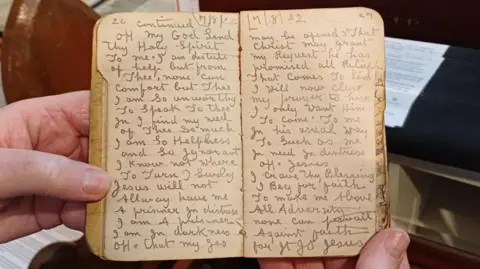 26 continued [7/8/22
oH my God Send
Thy Holy Spirit
To me I am distute
of help but from
Thee, none can
Comfort but Thee
I am So unworthy
To Speak To Thee
In I find my need
of Thee So much
I am So Helpless
and So Ignorant
I Know not Where
To Turn I Surley
Jesus will not
Allway have me
A prisoner In distress
I am A prisoner
I am In darkness
OH that my
[7/8/22 27
may be opened & That
Christ may grant
my Request he has
promised all Relief
That Comes To him
I will now Close
my prayer To him
I only Want Him
To Come To me
In his usual Way
To Such as me
In need In distress
of Jesus
I crave Thy Blessing
I Beg for faith
To make me Above
All Adversity
none can prevail
Against faith
for it Is Jesus